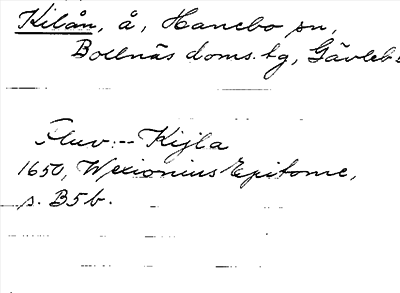 Kilån, å, Hanebo sn,
Bollnäs doms.tg, Gävleb
Fluv. -- Kijla
1650, Wexionius Epitome,
s. B5b.